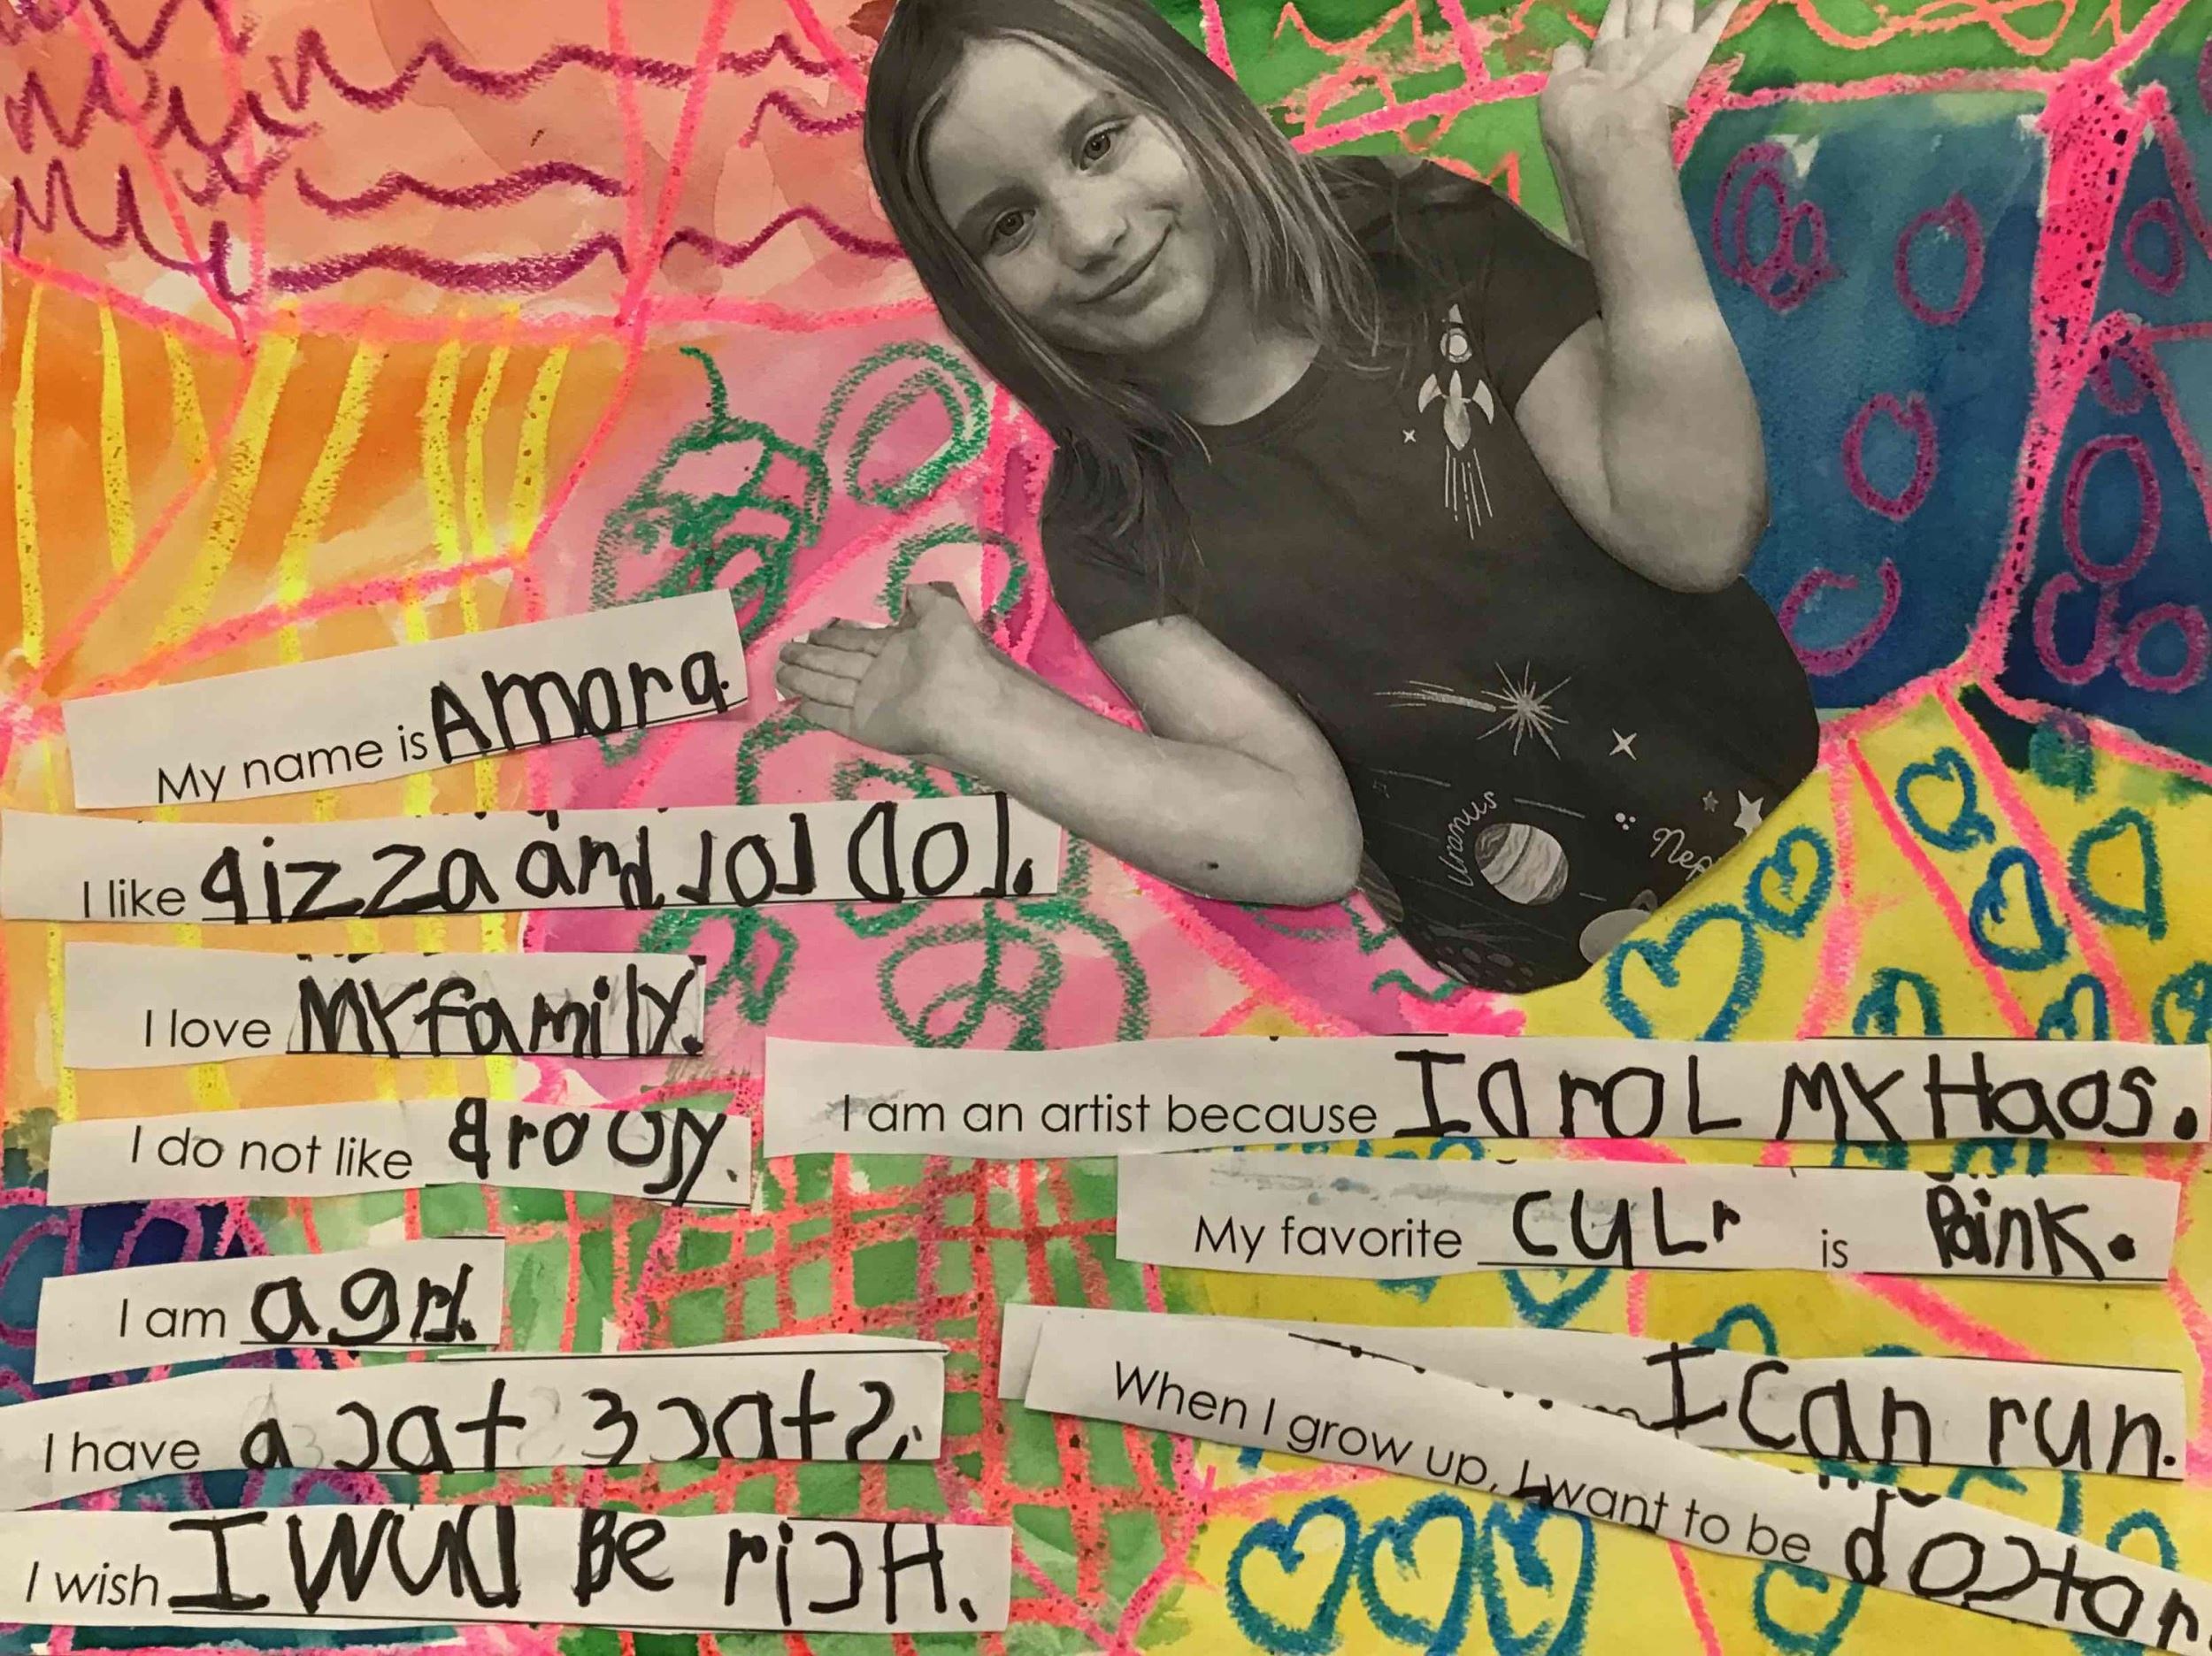 My name is Amora.
I like qizza and
I love My family.
I do not like
I am agrl.
I have a cat 3 cats.
I wish I WUd Be ricH.
I am an artist because I drol My Haos.
My favorite culr is Pink.
I can run.
When I grow up, I want to be doctor
Uranus
Nep